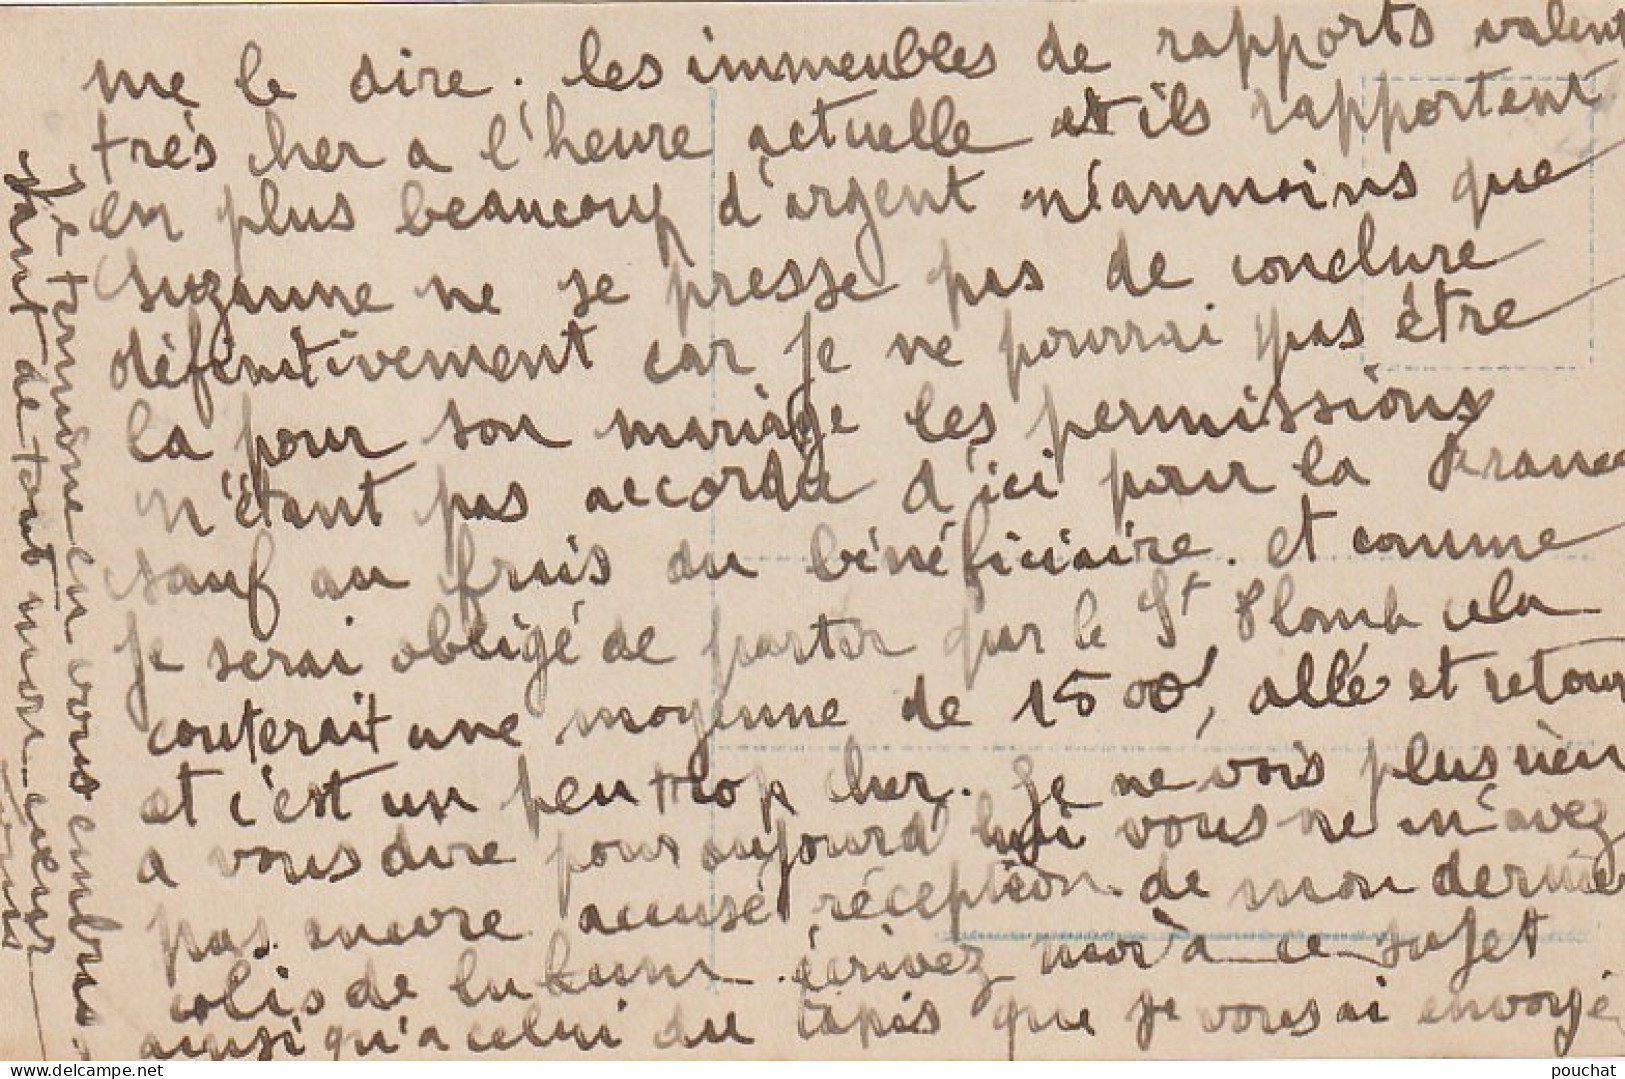 me le dire. les immeubles de rapports valent
très cher a l'heure actuelle et ils rapportent
en plus beaucoup d'argent néanmoins que
Suzanne ne se presse pas de conclure
définitivement car je ne pourrai pas être
la pour son mariage les permissions
n'étant pas accordée d'ici pour la France
sauf au frais du bénéficiaire. et comme
je serai obligé de partir par le St Plomb cela
couterait une moyenne de 1500f, allé et retour
et c'est un peu trop cher. Je ne vois plus rien
a vous dire pour aujourd'hui vous ne m'avez
pas encore accusé réception de mon dernier
colis de lukum écrivez moi à ce sujet
ainsi qu'a celui du tapis que je vous ai envoyé
Je termine en vous embrassant de tout mon cœur
pouchat